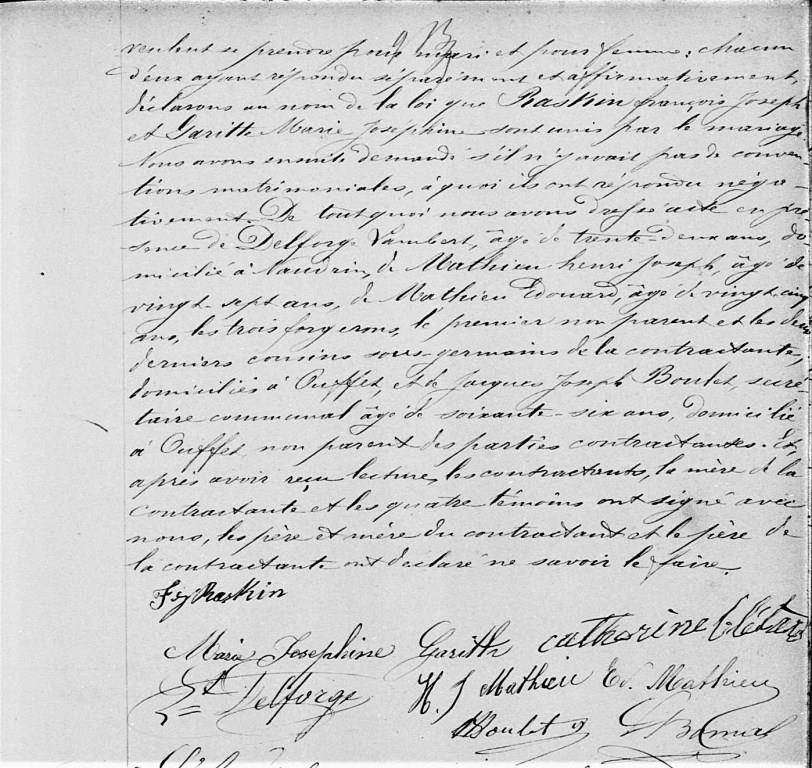 veulent se prendre pour mari et pour femme; chacun
d'eux ayant répondu séparément et affirmativement,
déclarons au nom de la loi que Raskin françois Joseph
et Garitte Marie Joséphine sont unis par le mariage.
Nous avons ensuite demandé s'il n'y avait pas de conven-
tions matrimoniales, à quoi ils ont répondu néga-
tivement. De tout quoi nous avons dressé acte en pré-
sence de Delforge Lambert, âgé de trente-deux ans, do-
micilié à de Mathieu henri Joseph, âgé de
vingt sept ans, de Mathieu Edouard, âgé de vingt cinq
ans, les trois forgerons, le premier non parent et les deux
derniers cousins sous-germains de la contractante,
domiciliés à Ouffet, et de Jacques Joseph Boulet, secré-
taire communal âgé de soixante-six ans, domicilié
à Ouffet non parent des parties contractantes. Et,
après avoir reçu lecture, les contractants, la mère de la
contractante et les quatre témoins ont signé avec
nous, les père et mère du contractant et le père de
la contractante ont déclaré ne savoir le faire.
F J Raskin
Marie Josephine Garitte catherine
Lt Delforge H. J Mathieu Ed. Mathieu
Boulet